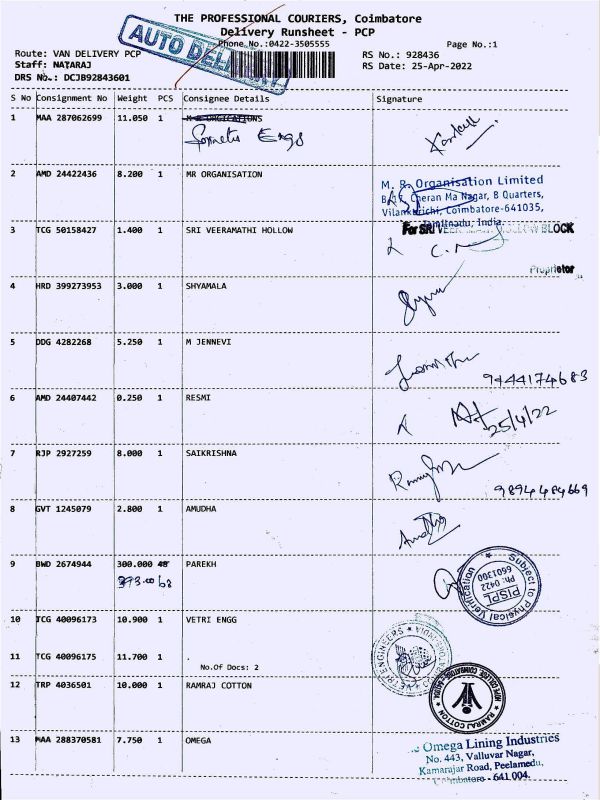 THE PROFESSIONAL COURIERS, Coimbatore
Delivery Runsheet - PCP
AUTO
Phone No.:0422-3505555
Page No.:1
Route: VAN DELIVERY PCP
RS No.: 928436
Staff: NATARAJ
RS Date: 25-Apr-2022
DRS No.: DCJB92843601
S No Consignment No Weight PCS Consignee Details Signature
1 MAA 287062699 11.050 1
Engs
2 AMD 24422436 8.200 1 MR ORGANISATION
M. R. Organisation Limited
Cheran Ma Nagar, 8 Quarters,
Coimbatore-641035,
Tamilnadu, India.
3 TCG 50158427 1.400 1 SRI VEERAMATHI HOLLOW
For SRI VEER HOLLOW BLOCK
Proprietor
4 HRD 399273953 3.000 1 SHYAMALA
5 DDG 4282268 5.250 1 M JENNEVI
9444174683
6 AMD 24407442 0.250 1 RESMI
25/4/22
7 RJP 2927259 8.000 1 SAIKRISHNA
9894484669
8 GVT 1245079 2.800 1 AMUDHA
9 BWD 2674944 300.000 PAREKH
Subject to Physical Verification
PISPL
Ph: 0422
6601300
10 TCG 40096173 10.900 1 VETRI ENGG
11 TCG 40096175 11.700 1
No.Of Docs: 2
12 TRP 4036501 10.000 1 RAMRAJ COTTON
RAMRAJ COTTON
13 MAA 288370581 7.750 1 OMEGA
Omega Lining Industries
No. 443, Valluvar Nagar,
Kamarajar Road, Peelamedu,
Coimbatore - 641 004.